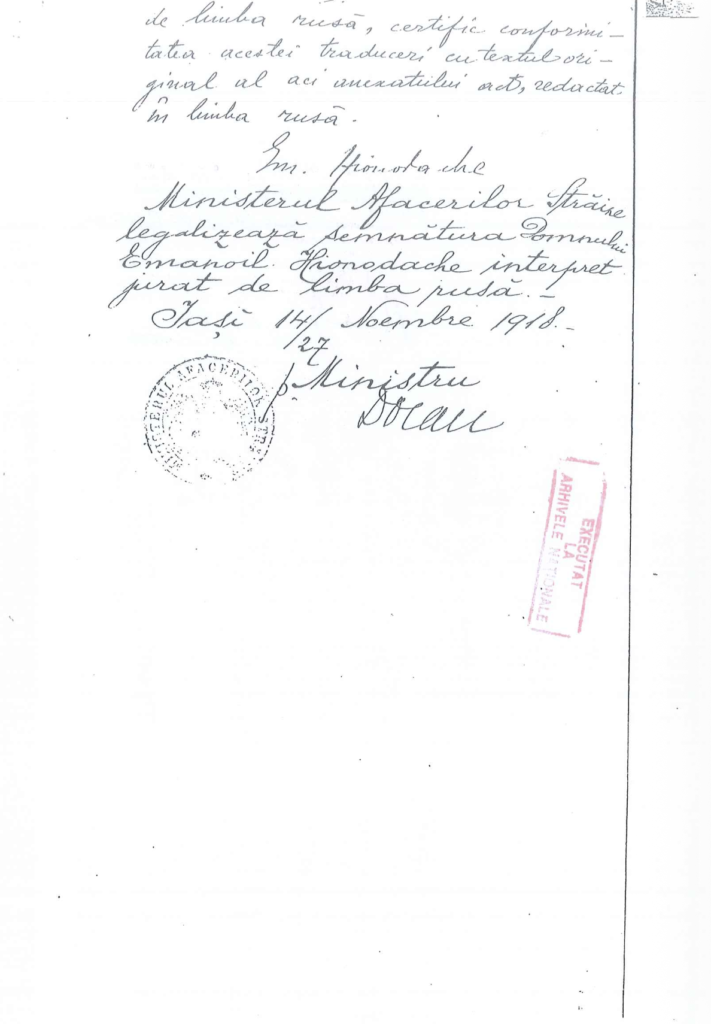 de limba rusă, certific conformi-
tatea acestei traduceri cu textul ori-
ginal al aci anexatului act, redactat
în limba rusă.
Em. Hionodache
Ministerul Afacerilor Străine
legalizează semnătura Domnului
Emanoil Hionodache interpret
jurat de limba rusă.-
Iași 14/27 Noembre 1918.-
p. Ministru
MINISTERUL AFACERILOR STR
EXECUTAT
LA
ARHIVELE NAȚIONALE